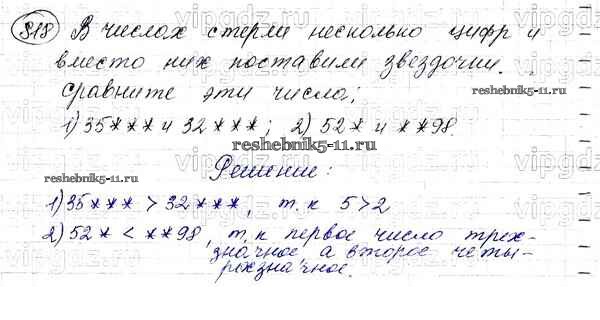 818 В числах стерли несколько цифр и
вместо них поставили звездочки.
Сравните эти числа:
1) 35*** и 32***; 2) 52* и **98.
reshebnik5-11.ru
reshebnik5-11.ru
reshebnik5-11.ru
Решение:
1) 35*** > 32***, т.к 5>2
2) 52* < **98, т.к первое число трех-
значное а второе четы-
рехзначное.